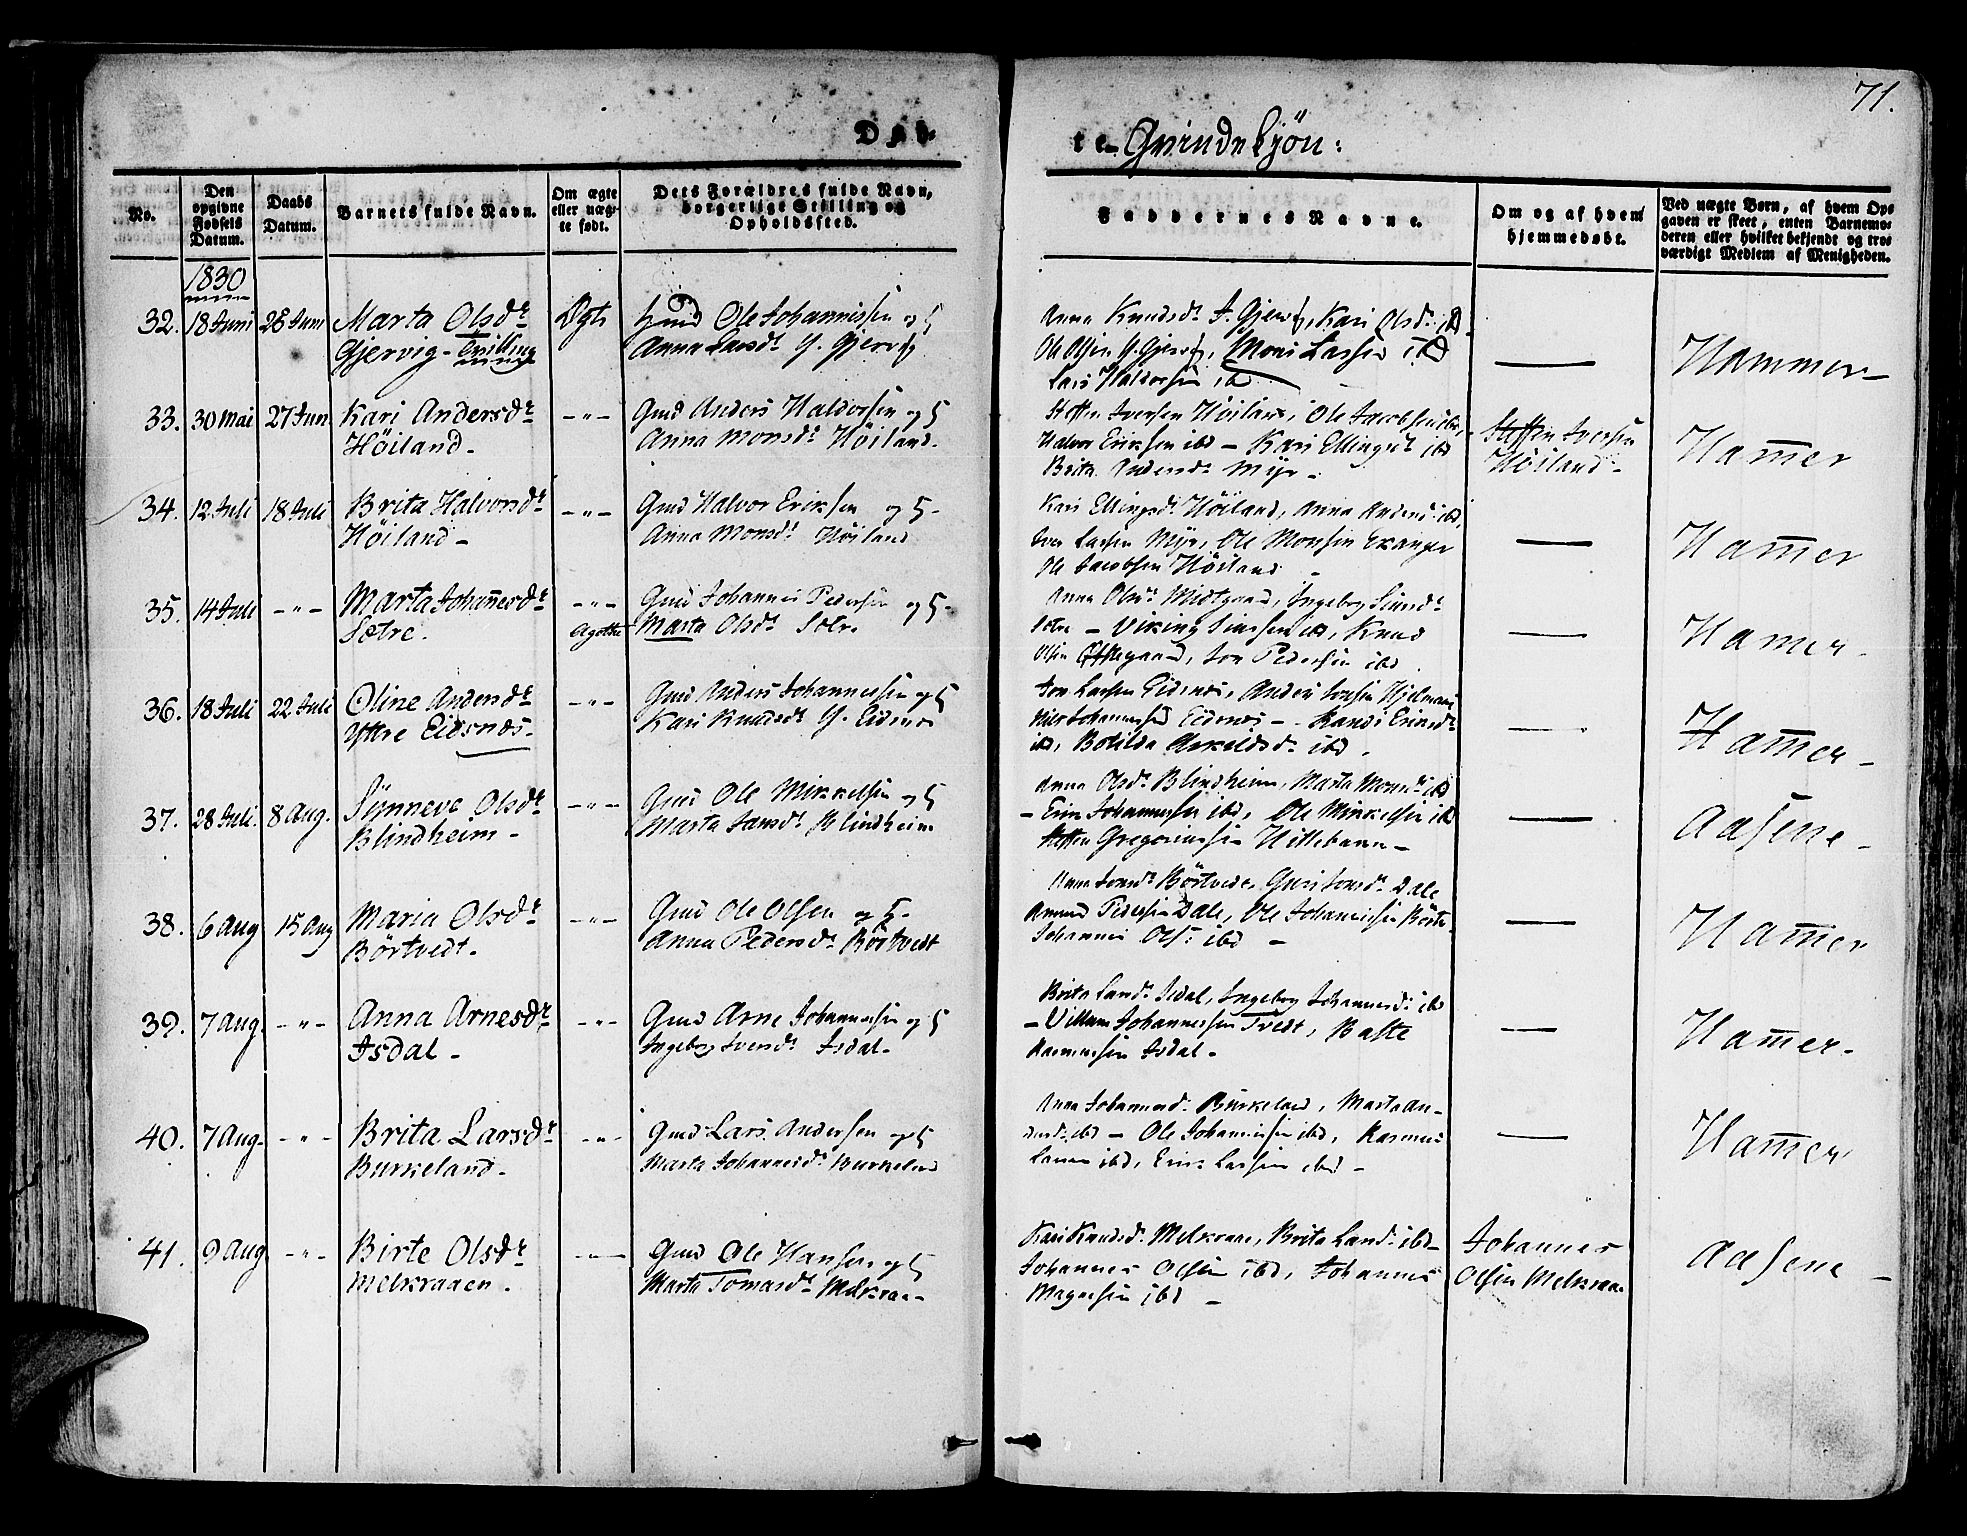 71.
Døb-
te- Qvindekjön:
No.
Den opgivne Fødsels Datum.
Daabs Datum.
Barnets fulde Navn.
Om ægte eller uægte født.
Dets Forældres fulde Navn, borgerlige Stilling og Opholdssted.
Faddernes Navne.
Om og af hvem hjemmedøbt.
Ved uægte Børn, af hvem Opgaven er skeet, enten Barnemoderen eller hvilket bekjendt og troværdigt Medlem af Menigheden.
1830
32. 18 Juni 28 Juni Marta Olsdr
Gjervig - Tvilling
Ægte
Gmd Ole Johannissen og H
Anna Larsdr Y. Gjervig
Anna Knudsdr I. Gjervig, Kari Olsdr ibd
Ole Olsen Y. Gjervig, Mons Larsen ibd
Lars Haldorsen ibd
Hammer
33. 30 Mai 27 Jun Kari Andersdr
Höiland -
-"-
Gmd Anders Haldorsen og H
Anna Monsdr Höiland.
Steffen Iversen Höiland, Ole Jacobsen ibd,
Halvor Eriksen ibd - Kari Ellingsdr ibd
Brita Andersdr Myr -
Steffen Iversen
Höiland -
Ham̅er
34. 12 Juli 18 Juli Brita Halvorsdr
Höiland -
-"-
Gmd Halvor Eriksen og H-
Anna Monsdr Höiland
Kari Ellingsdr Höiland, Anna Andersdr ibd,
Iver Larsen Myr, Ole Monsen Ekanger
Ole Jacobsen Höiland -
Ham̅er
35. 14 Juli -"- Marta Johan̅esdr
Sætre.
-"-
Agothe
Gmd Johannes Pedersen og H-
Marta Olsdr Sætre
Anna Olsdr Midtgaard, Ingeborg
Sætre - Viking ibd, Knud
Olsen, Jon Pedersen ibd.
Ham̅er
36. 18 Juli 22 Juli Oline Andersdr
Yttre Eidsnes.
-"-
Gmd Anders Johannessen og H
Kari Knudsdr Y. Eidsnes
Jon Larsen Eidsnes, Anders
Johannessen Eidsnes - Eriksdr
ibd, Botilda ibd.
Ham̅er -
37. 28 Juli. 8 Aug. Synneve Olsdr
Blindheim -
-"-
Gmd Ole Mikkelsen og H
Marta Blindheim
Anna Olsdr Blindheim, Marta Monsdr ibd
- Erik Johannessen ibd, Ole Mikkelsen ibd
Steffen Gregoriussen
Aasene -
38. 6 Aug 15 Aug Maria Olsdr
Börtvedt.
-"-
Gmd Ole Olsen og H-
Anna Pedersdr Börtvedt
Anna Jonsdr Börtvedt, Guri Jonsdr Dale
Amund Pedersen Dale, Ole Johannissen Börtv
Johannes Ols: ibd -
Ham̅er
39. 7 Aug. -"- Anna Arnesdr
Isdal -
-"-
Gmd Arne Johannessen og H
Ingeborg Iversdr Isdal -
Brita Larsdr Isdal, Ingeborg Johannesdr ibd
- Villum Johannessen Tvedt, Baste
Rasmussen Isdal -
Ham̅er -
40. 7 Aug- -"- Brita Larsdr
Burkeland -
-"-
Gmd Lars Andersen og H
Marta Johannesdr Burkeland
Anna Johannesdr Burkeland, Marta An-
dersdr ibd - Ole Johannissen ibd, Rasmus
Larsen ibd, Erik Larsen ibd -
Ham̅er
41. 9 Aug -"- Birte Olsdr
Melkraaen.
-"-
Gmd Ole Hansen og H
Marta Tomasdr Melkraae-
Kari Knudsdr Melkraae, Brita Larsdr ibd-
Johannes Olsen ibd, Johannes
Magnesen ibd -
Johannes
Olsen Melkraae
Aasene -